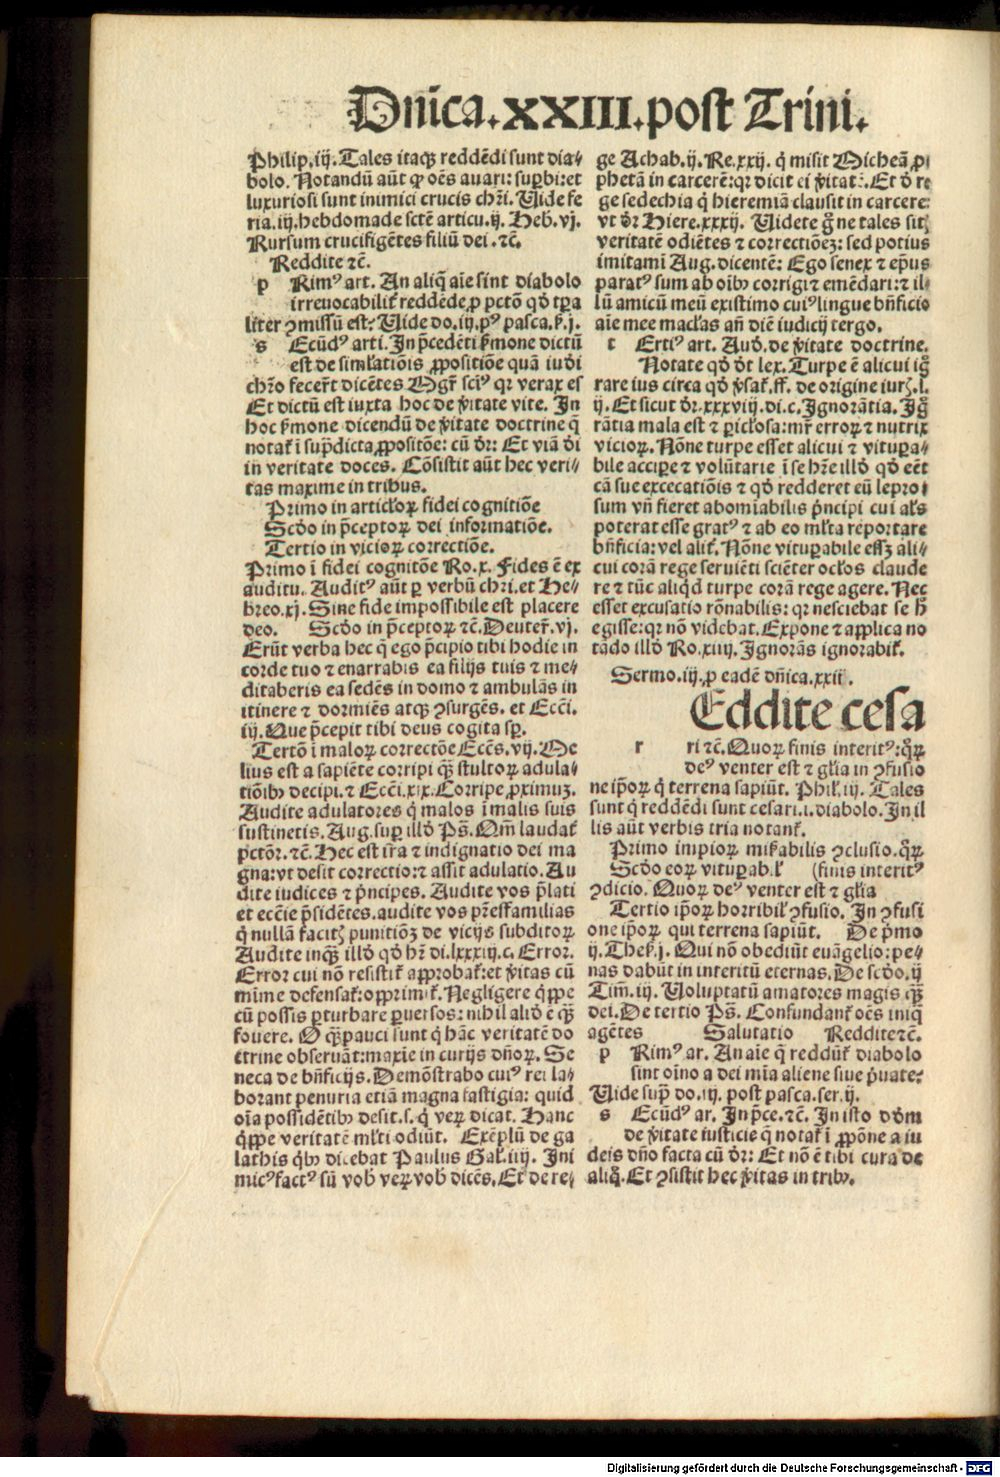 Dnīca.XXIII.post Trini.
Philip.iij. Tales itaqꝫ reddēdi sunt dia-
bolo. Notandū aūt ꝙ oēs auari: suꝑbi: et
luxuriosi sunt inimici crucis chꝛi. Uide fe
ria.iij.hebdomade sctē articu.ij. Heb.vj.
Rursum crucifigētes filiū dei .ꝛc̄.
Reddite ꝛc̄.
p Rimꝰ art. An aliq̄ aīe sint diabolo
irreuocabiliť reddēde, ꝓ pctō qd̓ tꝑa
liter ꝯmissū est. Uide do.iij.pꝰ pasca.ẜ.j.
s Ecūdꝰ arti. In p̄cedēti ẜmone dictū
est de simľatiōis ꝓpositiōe quā iudi
chꝛo feceřt dicētes Mgř scimꝰ qꝛ verax es
Et dictū est iuxta hoc de v̓itate vite. In
hoc ẜmone dicendū de v̓itate doctrine q̄
notať ī sup̄dicta ꝓpositōe: cū dꝛ: Et viā dī
in veritate doces. Cōsistit aūt hec veri-
tas maxime in tribus.
Primo in articľoꝝ fidei cognitiōe
Scd̓o in p̄ceptoꝝ dei informatiōe.
Tertio in vicioꝝ correctiōe.
Primo ī fidei cognitōe Ro.x. Fides ē ex
auditu. Auditꝰ aūt ꝑ verbū chꝛi. et He-
breo.xj. Sine fide impossibile est placere
deo. Scd̓o in p̄ceptoꝝ ꝛc̄. Deuteř.vj.
Erūt verba hec q̄ ego p̄cipio tibi hodie in
corde tuo ⁊ enarrabis ea filijs tuis ⁊ me-
ditaberis ea sedēs in domo ⁊ ambulās in
itinere ⁊ dormiēs atqꝫ ꝯsurgēs. et Ecci.
iij. Que p̄cepit tibi deus cogita sꝑ.
Tertō ī maloꝝ correctōe Eccēs.vij. Me
lius est a sapiēte corripi qꝫ̄ stultoꝝ adula-
tiōibꝰ decipi. ⁊ Ecci.xix. Corripe ꝓximuꝫ.
Audite adulatores q̄ malos ī malis suis
sustinetis. Aug. suꝑ illd̓ Ps̄. Qm̄ laudať
pctōꝛ. ꝛc̄. Hec est iřa ⁊ indignatio dei ma
gna: vt desit correctio: ⁊ assit adulatio. Au
dite iudices ⁊ p̄ncipes. Audite vos p̄lati
et ecēie p̄sidētes. audite vos pr̄esfamilias
q̄ nullā facitꝭ punitiōꝫ de vicijs subditoꝝ
Audite inqꝫ̄ illd̓ qd̓ hꝛ̄ di.lxxxiij.c. Error.
Error cui nō resistiť approbať: et v̓itas cū
mīme defensať: opprimiť. Negligere q̄ppe
cū possis ꝑturbare ꝑuersos: nihil aliđ ē qꝫ̄
fouere. O qꝫ̄ pauci sunt q̄ hāc veritatē do
ctrine obseruāt: maxīe in curijs dn̄oꝝ. Se
neca de bn̄ficijs. Demōstrabo cuiꝰ rei la-
borant penuria etiā magna fastigia: quid
oīa possidētibꝰ desit. s. q̄ veꝝ dicat. Hanc
q̄ppe veritatē mľti odiūt. Exēplū de ga
lathis q̄bꝰ dicebat Paulus Gal.iiij. Ini
micꝰ factꝰ sū vob̄ veꝝ vob̄ dicēs. Et de re-
ge Achab.ij. Re.xxij. q̄ misit Micheā ꝓ
phetā in carcerē: qꝛ dicit ei v̓itatē. Et d̓ re
ge sedechia q̄ hieremiā clausit in carcere:
vt dꝛ Hiere.xxxij. Uidete g̊ ne tales sitꝭ
veritatē odiētes ⁊ correctiōeꝫ: sed potius
imitamī Aug. dicentē: Ego senex ⁊ ep̄us
paratꝰ sum ab oībꝰ corrigi ⁊ emēdari: ⁊ il-
lū amicū meū existimo cuiꝰ lingue bn̄ficio
aīe mee macľas an̄ diē iudicij tergo.
t Ertiꝰ art. Aud̓. de v̓itate doctrine.
Notate qd̓ dt̓ lex. Turpe ē alicui ig̊
rare ius circa qd̓ v̓sať. ff. de origine iurꝭ. l.
ij. Et sicut dꝛ.xxxviij.di.c. Ignorātia. Ig̊
rātia mala est ⁊ ꝑicľosa: mr̄ erroꝝ ⁊ nutrix
vicioꝝ. Nōne turpe esset alicui ⁊ vituꝑa-
bile accipe ⁊ volūtarie ī se hr̄e illd̓ qd̓ eēt
cā sue excecatiōis ⁊ qd̓ redderet eū lepro
sum vn̄ fieret abomiabilis p̄ncipi cui aľs
poterat esse gratꝰ ⁊ ab eo mľta reportare
bn̄ficia: vel aliť. Nōne vituꝑabile esꝫ ali-
cui corā rege seruiēti sciēter ocľos claude
re ⁊ tūc aliq̄d turpe corā rege agere. Nec
esset excusatio rōnabilis: qꝛ nesciebat se h̓
egisse: qꝛ nō videbat. Expone ⁊ applica no
tādo illd̓ Ro.xiiij. Ignorās ignorabiť.
Sermo.iij. ꝓ eadē dn̄ica.xxii.
Eddite cesa
r ri ꝛc̄. Quoꝝ finis interitꝰ: q̊ꝝ
deꝰ venter est ⁊ gľia in ꝯfusio
ne ip̄oꝝ q̄ terrena sapiūt. Phil.iij. Tales
sunt q̄ reddēdi sunt cesari. i. diabolo. In il
lis aūt verbis tria notanť.
Primo impioꝝ miẜabilis ꝯclusio. q̊ꝝ
Scd̓o eoꝝ vituꝑabiľ (finis interitꝰ
ꝯdicio. Quoꝝ deꝰ venter est ⁊ gľia
Tertio ip̄oꝝ horribiľ ꝯfusio. In ꝯfusi
one ip̄oꝝ qui terrena sapiūt. De p̄mo
ij. Theẜ.j. Qui nō obediūt euāgelio: pe-
nas dabūt in interitū eternas. De scd̓o. ij
Tim̄.iij. Uoluptatū amatores magis qꝫ̄
dei. De tertio Ps̄. Confundanť oēs iniq̄
agētes Salutatio Reddite ꝛc̄.
p Rimꝰ ar. An aīe q̄ reddūť diabolo
sint oīno a dei mīa aliene siue p̓uate.
Uide sup̄ do.iij. post pasca. ser.ij.
s Ecūdꝰ ar. In p̄ce. ꝛc̄. In isto d̓om
de v̓itate iusticie q̄ notať ī ꝓpōne a iu
deis dn̄o facta cū dꝛ: Et nō ē tibi cura de
aliq̊. Et ꝯsistit hec v̓itas in tribꝰ.
Digitalisierung gefördert durch die Deutsche Forschungsgemeinschaft - DFG